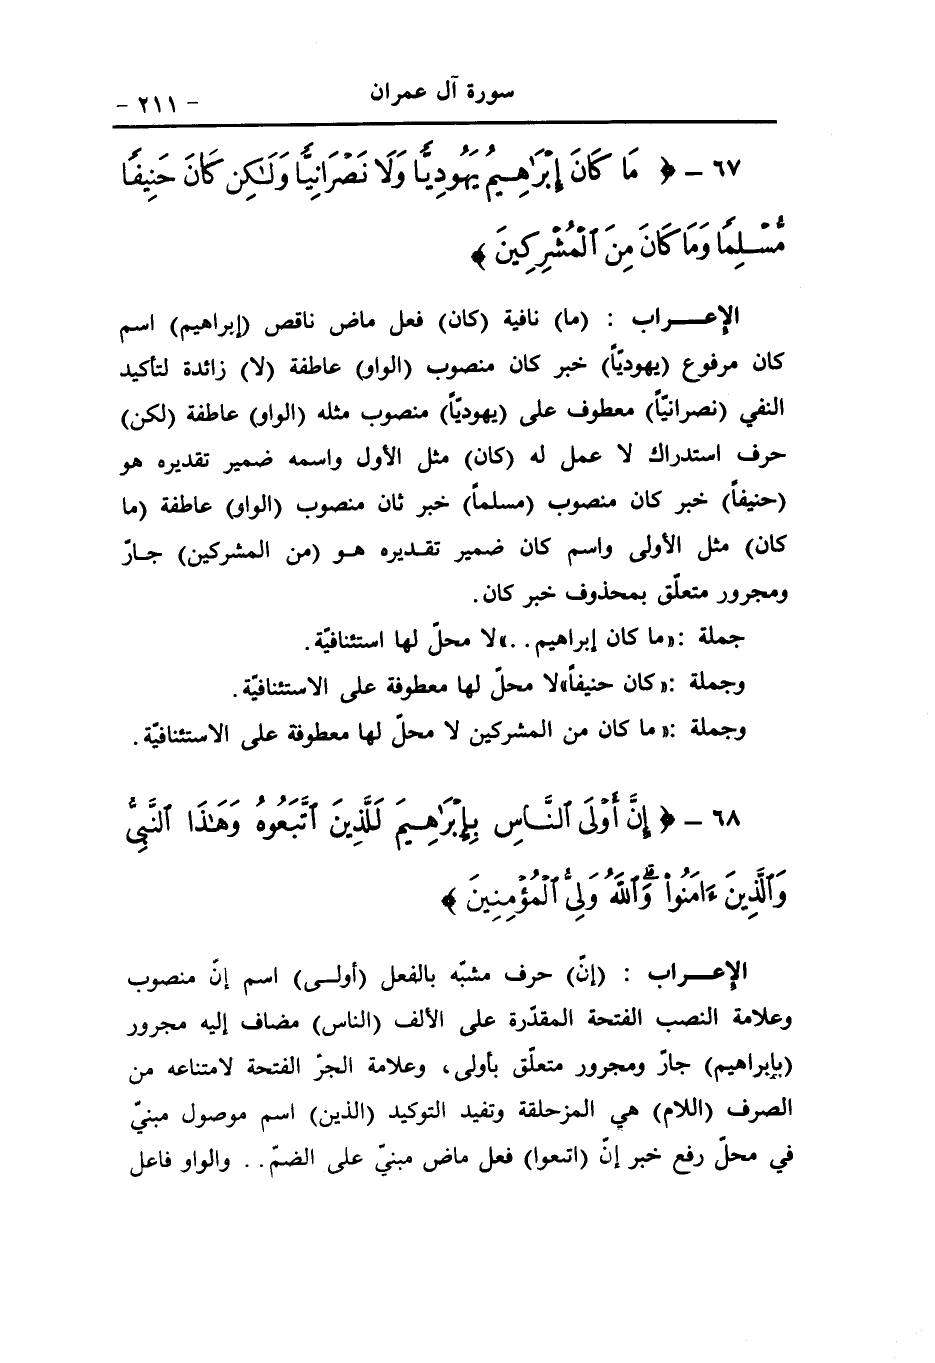 سورة آل عمران
- ٢١١ -
٦٧ - ﴿ مَا كَانَ إِبْرَٰهِيمُ يَهُودِيًّا وَلَا نَصْرَانِيًّا وَلَٰكِن كَانَ حَنِيفًا
مُّسْلِمًا وَمَا كَانَ مِنَ ٱلْمُشْرِكِينَ ﴾
الإعــــراب : (ما) نافية (كان) فعل ماض ناقص (إبراهيم) اسم
كان مرفوع (يهوديّاً) خبر كان منصوب (الواو) عاطفة (لا) زائدة لتأكيد
النفي (نصرانيّاً) معطوف على (يهوديّاً) منصوب مثله (الواو) عاطفة (لكن)
حرف استدراك لا عمل له (كان) مثل الأول واسمه ضمير تقديره هو
(حنيفاً) خبر كان منصوب (مسلماً) خبر ثان منصوب (الواو) عاطفة (ما
كان) مثل الأولى واسم كان ضمير تقـديره هـو (من المشركين) جـارّ
ومجرور متعلّق بمحذوف خبر كان.
جملة :«ما كان إبراهيم. .»لا محلّ لها استئنافيّة.
وجملة :«كان حنيفاً»لا محلّ لها معطوفة على الاستئنافيّة.
وجملة :« ما كان من المشركين لا محلّ لها معطوفة على الاستئنافيّة.
٦٨ - ﴿ إِنَّ أَوْلَى ٱلنَّـاسِ بِإِبْرَٰهِـيمَ لَلَّذِينَ ٱتَّبَعُوهُ وَهَٰذَا ٱلنَّبِىُّ
وَٱلَّذِينَ ءَامَنُواْ ۗ وَٱللَّهُ وَلِىُّ ٱلْمُؤْمِنِينَ ﴾
الإعــــراب : (إنّ) حرف مشبّه بالفعل (أولـى) اسم إنّ منصوب
وعلامة النصب الفتحة المقدّرة على الألف (الناس) مضاف إليه مجرور
(بإبراهيم) جارّ ومجرور متعلّق بأولى، وعلامة الجرّ الفتحة لامتناعه من
الصرف (اللام) هي المزحلقة وتفيد التوكيد (الذين) اسم موصول مبنيّ
في محلّ رفع خبر إنّ (اتبعوا) فعل ماض مبنيّ على الضمّ. . والواو فاعل